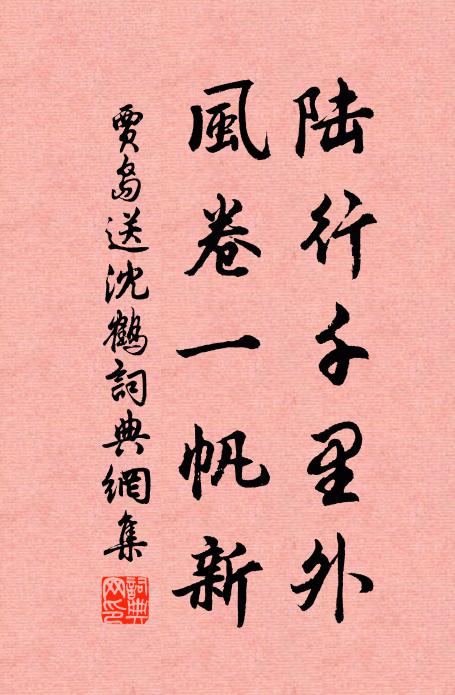 陆行千里外
風卷一帆新
賈島送沈鶴詞典網集
詞典網印